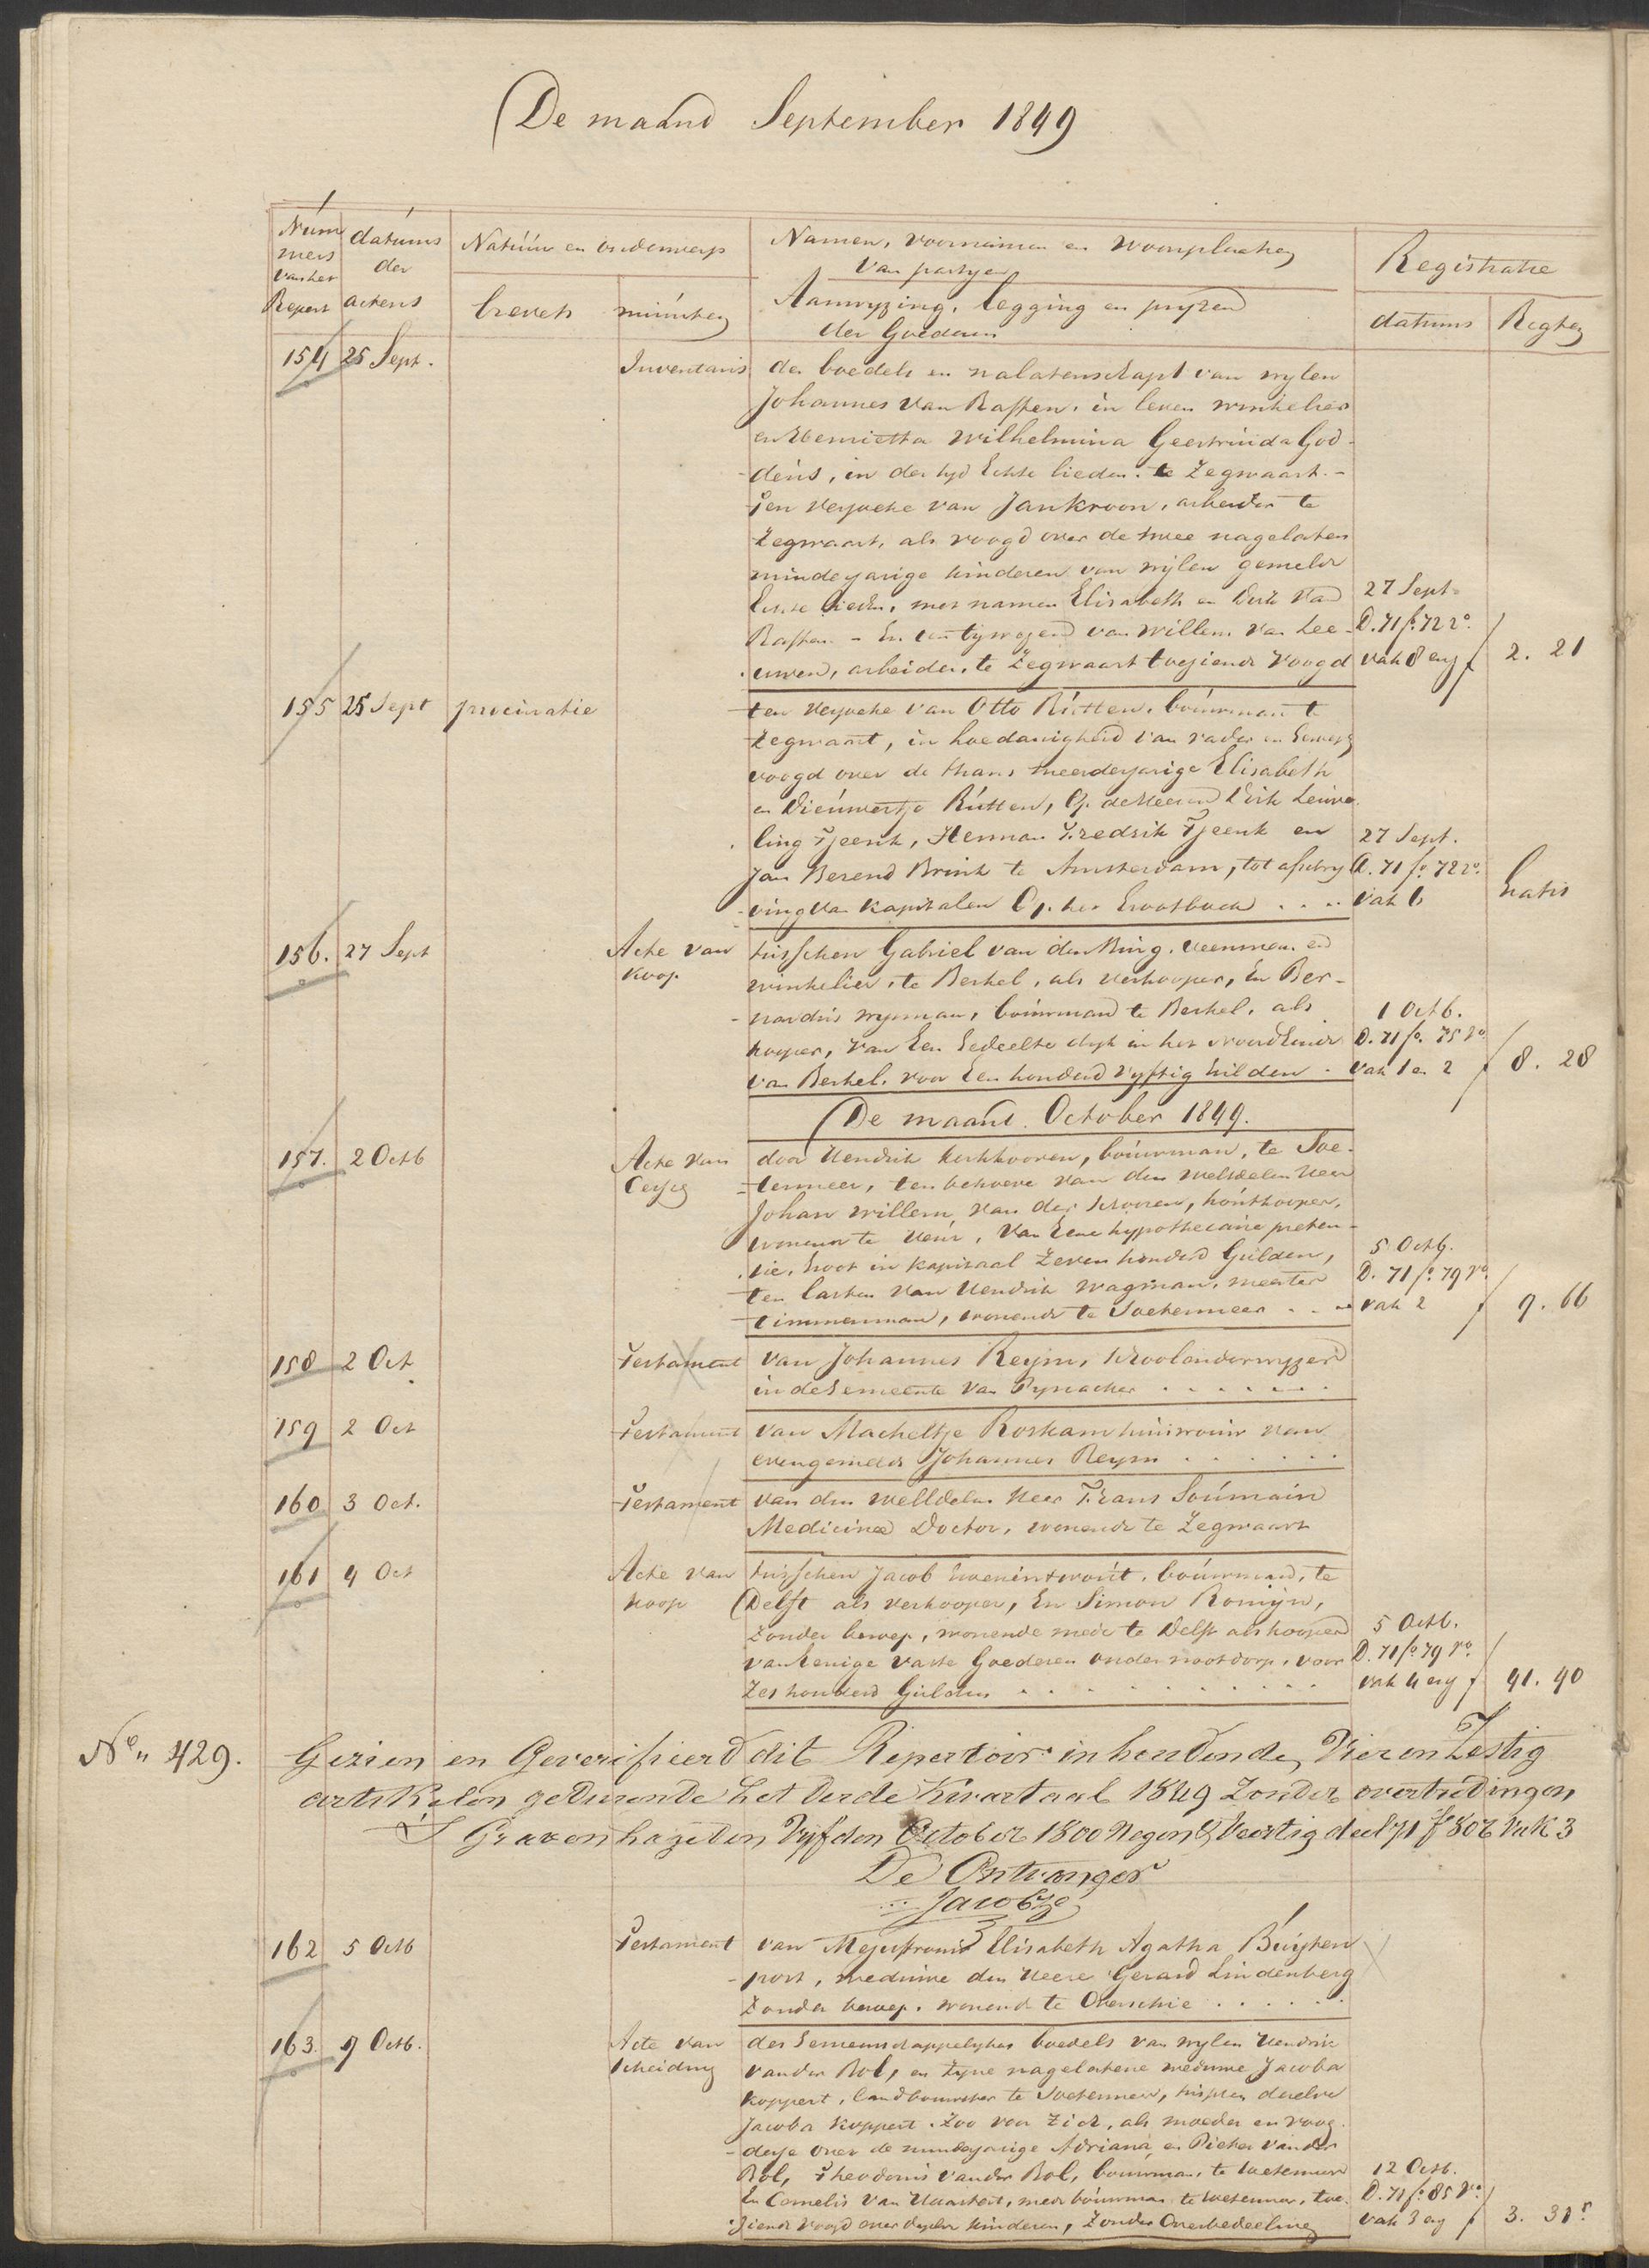 De maand September 1849
Num
mers
van het
Repert
datums
der
actens
Natuur en onderwerp
brevets
minuten
Namen, voornamen en woonplaatsen
van partijen
Aanwyzing, legging en pryzen
der Goederen
Registratie
datums
Regten
154 25 Sept.
Inventaris
der boedels en nalatenschap van wylen
Johannes van Rassen, in leven winkelier
en Henrietta Wilhelmina Geertruida God-
dens, in der tyd Echte lieden te Zegwaart.-
Ten verzoeke van Jan Kroon, arbeider te
Zegwaart, als voogd over de twee nagelaten
minderjarige kinderen van wylen gemelde
Echte lieden, met namen Elisabeth en Dirk van
Rassen - En ten bywezen van Willem van Lee-
uwen, arbeider, te Zegwaart toeziende voogd
27 Sept.
D. 71 fo. 72 ro.
vak 8 en f 2. 21
155 25 Sept procuratie
ten verzoeke van Otto Rutten, bouwman te
Zegwaart, in hoedanigheid van vader en
voogd over de thans meerderjarige Elisabeth
en Dieuwertje Rutten, op de Heeren Dirk Leuve
ling Tjeenk, Herman Fredrik Tjeenk en
Jan Berend Brink te Amsterdam, tot afschry
ving van kapitalen Op het Grootboek . . ..
27 Sept.
D. 71 fo. 72 ro.
vak 6
Gratis
156. 27 Sept
Acte van
Koop
tusschen Gabriel van den Burg, veenman en
winkelier, te Berkel, als verkooper, En Ber-
nardus Wysman, bouwman te Berkel, als
kooper, van Een Gedeelte dyk in het Noord Einde
van Berkel, voor Een honderd vyftig Gulden -
1 Octb.
D. 71 fo. 75 vo
vak 1 en 2 f 8. 28
De maand October 1849.
157. 2 Octb
Acte van
Cessie
door Hendrik Kerkhooven, bouwman, te Soe-
termeer, ten behoeve van den WelEdelen Heer
Johan Willem van der Schooren, houtkooper,
wonende te Veur, van Eene hypothecaire preten-
tie, Groot in kapitaal Zeven honderd Gulden,
ten lasten van Hendrik Wagman, meester
timmerman, wonende te Soetermeer . . .
5 Octb.
D. 71 fo. 79 ro.
vak 2 f 9. 66
158 2 Oct
Testament
van Johannes Reym, schoolonderwyzer
in de Gemeente van Pynacker . . . . . . .
159 2 Oct
Testament
van Macheltje Roskam huisvrouw van
evengemelde Johannes Reym . . . . . .
160 3 Oct.
Testament
van den WelEdelen Heer Frans Soumain
Medicinae Doctor, wonende te Zegwaart
161 4 Oct
Acte van
Koop
tusschen Jacob Groenewoud, bouwman, te
Delft als verkooper, En Simon Romijn,
zonder beroep, wonende mede te Delft als kooper
van Eenige vaste Goederen onder Nootdorp, voor
Zes honderd Gulden . . . . . . . . . . .
5 Octb.
D. 71 fo 79 vo.
vak 4 en f 41. 40
No. 429. Gezien en Geverifieerd dit Repertoir inhoudende, Vier en Zestig
artikelen gedurende het derde Kwartaal 1849 Zonder overtredingen
'S Gravenhage den Vyfden October 1800 Negen & Veertig deel 71 fo 80 r Vak 3
De Ontvanger
Jacobze
162 5 Octb
Testament
van Mejufvrouw Elisabeth Agatha Buyten
post, weduwe den Heere Gerard Lindenberg
Zonder beroep, wonende te Overschie . . . . . .
163. 9 Octb.
Acte van
Scheiding
des Gemeenschappelyken boedels van wylen Hendrik
van der Bol, en zyne nagelatene weduwe Jacoba
Koppert, landbouwster te Soetermeer, tusschen dezelve
Jacoba Koppert, zoo voor zich, als moeder en voog-
desse over de minderjarige Adriana en Pieter van der
Bol, Theodorus van der Bol, bouwman, te Soetermeer
En Cornelis van , mede bouwman te Soetermeer, toe-
ziende voogd over dezelve kinderen, Zonder Overbedeeling
12 Octb.
D. 71 fo. 85 vo.
vak 3 en f 3. 31 5